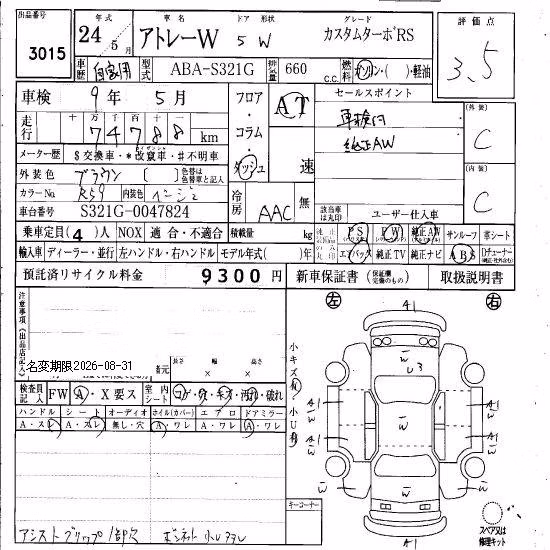 出品番号 年式 車名 ドア 形状 グレード 評価点
3015 24年5月 アトレーW 5 W カスタムターボRS 3.5
車歴 自家用 型式 ABA-S321G 排気量 660 c.c. 燃料 ガソリン・( )・軽油
車検 9年 5月 フロア・コラム・ダッシュ AT 速 セールスポイント
車検付
純正AW
走行 十万 万 千 百 十 一
74788 km
メーター歴 $交換車・*改竄車・#不明車
外装色 ブラウン [ ] 色替は色替車と記入
カラーNo. R59 内装色 ベージュ
冷房 AAC 無
車台番号 S321G-0047824
(外装) C
(内装) C
該当車は丸印 ユーザー仕入車
乗車定員(4)人 NOX 適合・不適合 積載量 kg
PS PW 純正AW サンルーフ 革シート
輸入車 ディーラー・並行 左ハンドル・右ハンドル モデル年式( )年
エアバック 純正TV 純正ナビ ABS
預託済リサイクル料金 9300円 新車保証書 取扱説明書
注意事項(出品店記入)
名変期限2026-08-31
車両寸法 長さ × 幅 × 高さ
検査員記入 FW A・X要ス 室内シート コゲ・穴・キズ・汚れ・破れ
ハンドル シート オーディオ ホイル(カバー) エアロ ドアミラー
A・スレ A・スレ 無し・穴 A・ワレ A・ワレ A・ワレ
小キズ有/小U有
キーコーナー
左 右
A1
W
U3
A1
W
A1
W
A1
W
A1
W
W
W
A1
スペア又は修理キット
アシストグリップ 1部欠 ボンネット小Uヌレ